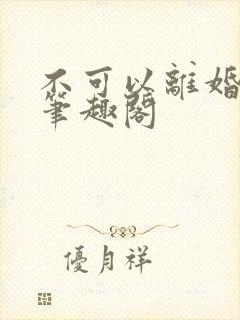 不可以離婚
筆趣閣
優月祥